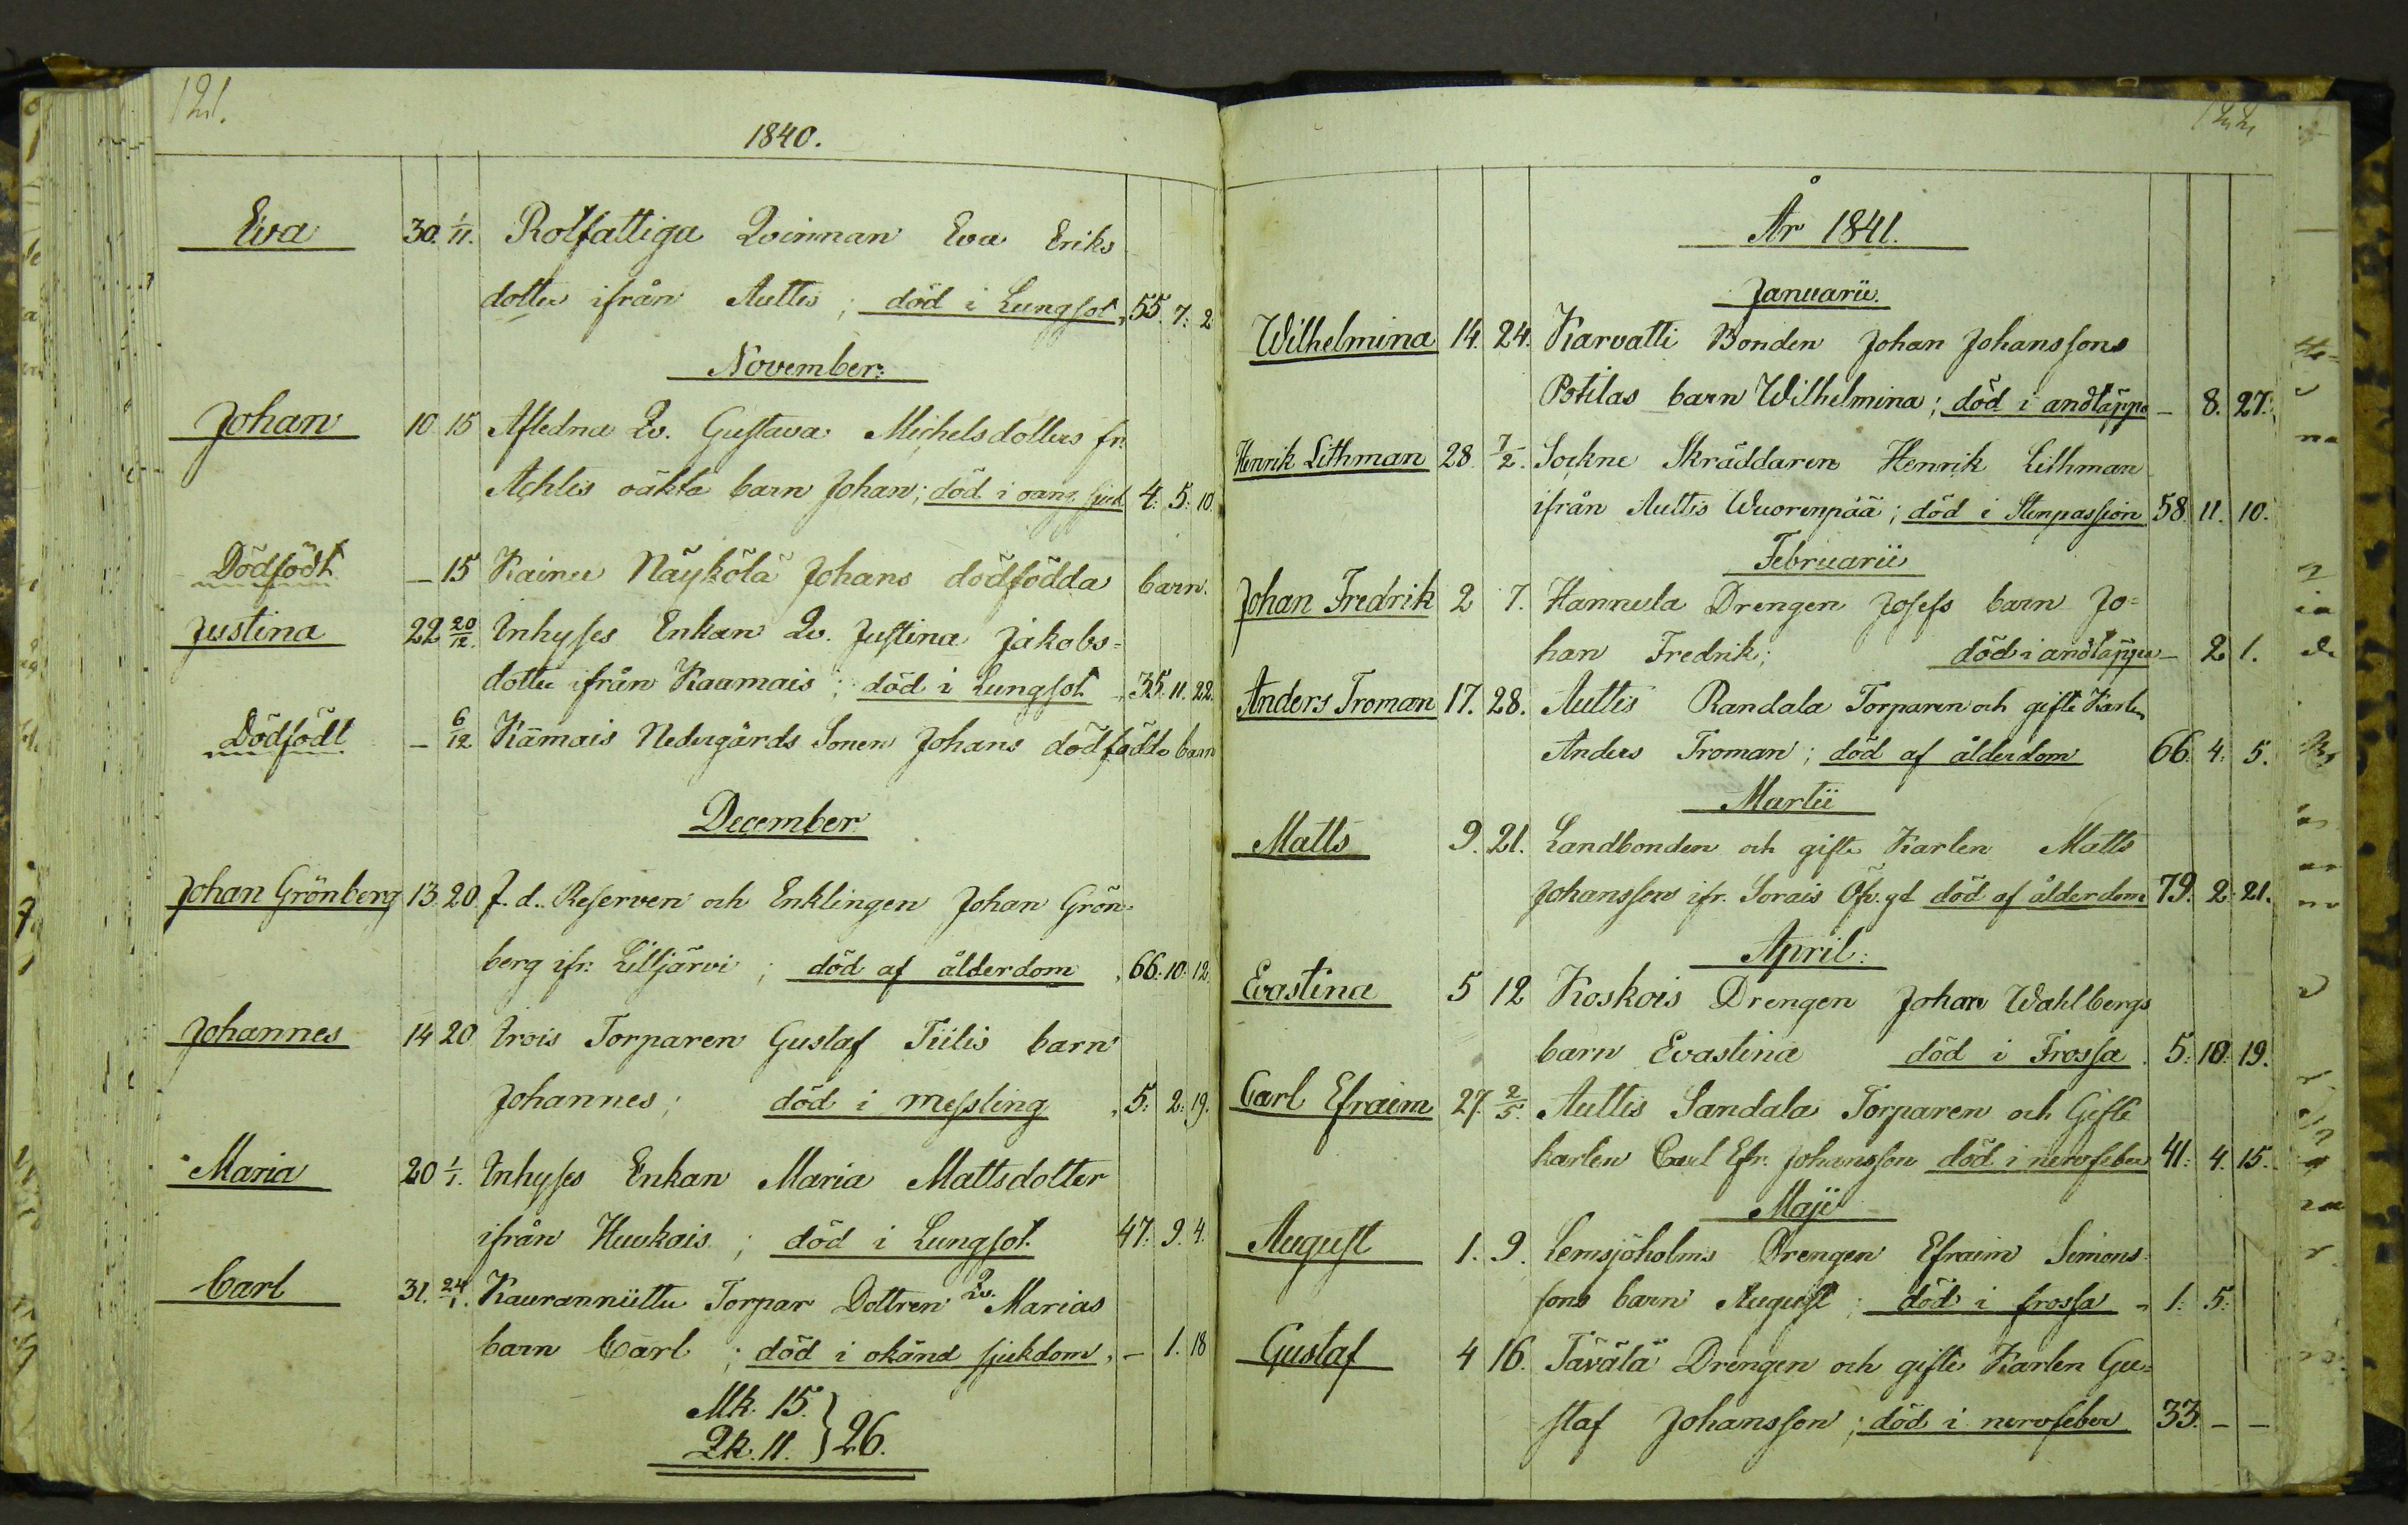 121.
1840.
Eva 30. 1/11. Rotfattiga Qvinnan Eva Eriks
dotter ifrån Auttis; död i Lungsot, 55. 7: 2
November:
Johan 10 15 Afledna Qv. Gustava Michelsdotters fr.
Achtis oäkta barn Johan; död i oang. sjuk 4: 5: 10.
Dödfödt — 15 Kainu Näykölä Johans dödfödda barn.
Justina 22 20/12. Inhyses Enkan Qv. Justina Jakobs=
dotter ifrån Kaamais; död i Lungsot 35. 11. 22.
Dödfödt — 6/12 Kämais Nedergårds Sonen Johans dödfödda barn
December
Johan Grönberg 13. 20. f. d. Reserven och Enklingen Johan Grön-
berg ifr. Lilljärvi; död af ålderdom, 66. 10: 12.
Johannes 14 20 Irois Torparen Gustaf Tiilis barn
Johannes; död i messling, 5: 2: 19.
Maria 20 1/1. Inhyses Enkan Maria Mattsdotter
ifrån Huukais; död i Lungsot. 47: 9. 4.
Carl 31. 24/1. Kauranniittu Torpar Dottren Qv. Marias
barn Carl; död i okänd sjukdom, — 1. 18
Mk. 15.
Qk. 11. } 26.
122
År 1841.
Januarii.
Wilhelmina 14. 24. Karvatti Bonden Johan Johanssons
Potilas barn Wilhelmina; död i andtäppa — 8. 27.
Henrik Lithman 28. 7/2. Sockne Skräddaren Henrik Lithman
ifrån Auttis Wuorenpää; död i Stenpassion 58. 11. 10.
Februarii
Johan Fredrik 2 7. Hannula Drengen Josefs barn Jo=
han Fredrik; död i andtäppa — 2 1.
Anders Troman 17. 28. Auttis Randala Torparen och gifte Karlen
Anders Troman; död af ålderdom 66. 4: 5.
Martii
Matts 9. 21. Landbonden och gifte Karlen Matts
Johansson ifr. Sorais Öfv. gd död af ålderdom 79. 2: 21.
April:
Evastina 5 12 Koskois Drengen Johan Wahlbergs
barn Evastina död i Frossa. 5: 10: 19.
Carl Efraim 27. 2/5. Auttis Sandala Torparen och Gifte
karlen Carl Efr. Johansson död i nervfeber 41: 4. 15.
Maji
August 1. 9. Lemsjöholms Drengen Efraim Simons-
sons barn August; död i frossa „ 1: 5:
Gustaf 4 16. Tävälä Drengen och gifte Karlen Gu=
staf Johansson; död i nervfeber 33. — —